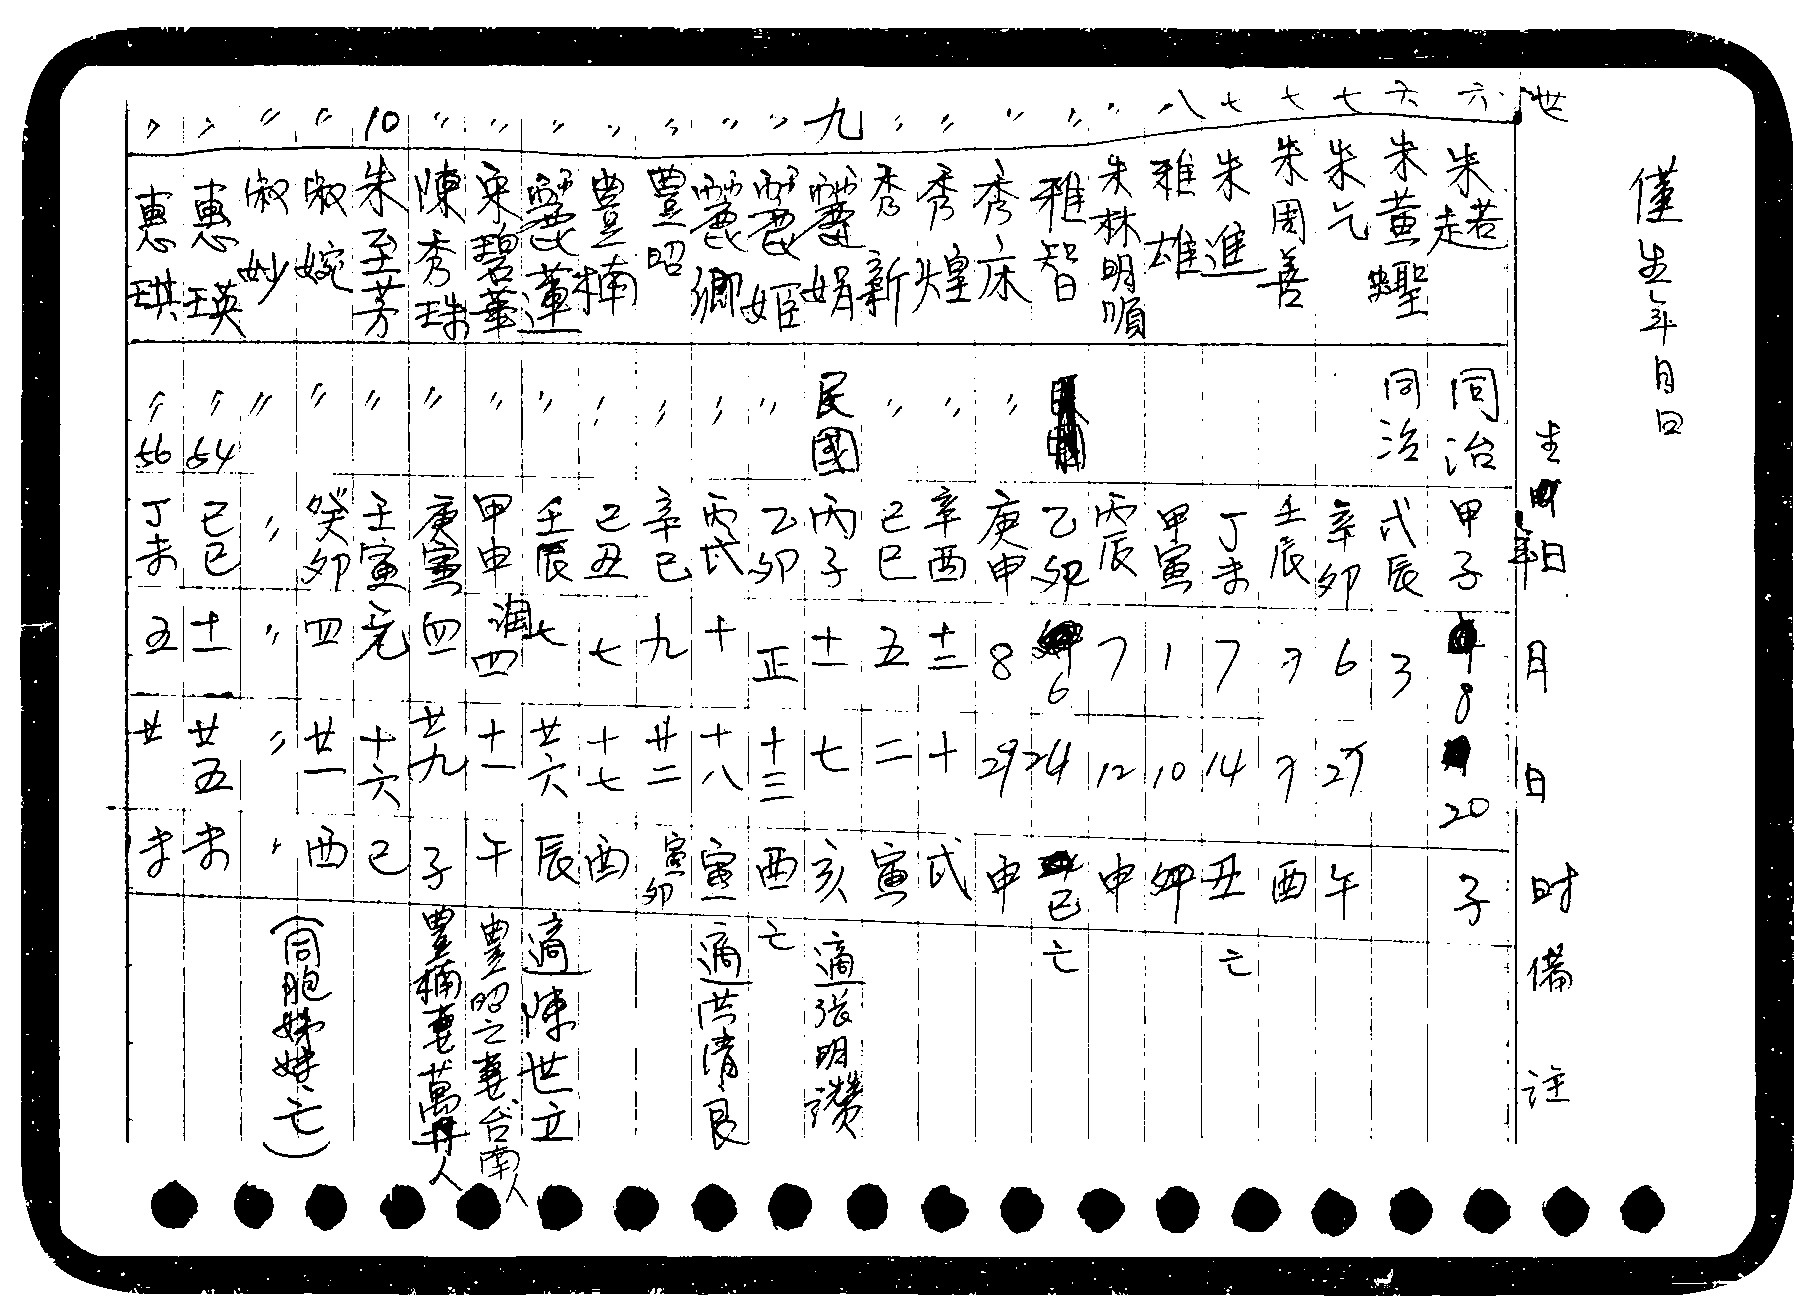 僅生年月日
世 生年日 月 日 时 備註
六 朱趕若 同治 甲子 8 20 子
六 朱黄蟶 同治 戊辰 3
七 朱乞 辛卯 6 27 午
七 朱周善 壬辰 ? ? 酉
七 朱進 丁未 7 14 丑 亡
八 雅雄 甲寅 1 10 卯
〃 朱林明順 丙辰 7 12 申
〃 雅智 乙卯 6 24 巳 亡
〃 秀床 〃 庚申 8 29 申
〃 秀煌 〃 辛酉 十二 十 戌
〃 秀新 〃 己巳 五 二 寅
九 麗娟 民國 丙子 十一 七 亥 適張明讚
〃 麗姬 〃 乙卯 正 十三 酉 亡
〃 麗卿 〃 丙戌 十 十八 寅 適洪清良
〃 豊昭 〃 辛巳 九 廿二 寅卯
〃 豊楠 〃 己丑 七 十七 酉
〃 麗蓮 〃 壬辰 七 廿六 辰 適陳世立
〃 宋碧華 〃 甲申 潤四 十一 午 豊昭之妻台南人
〃 陳秀珠 〃 庚寅 四 廿九 子 豊楠妻萬丹人
10 朱至芳 〃 壬寅 元 十六 巳
〃 淑婉 〃 癸卯 四 廿一 酉 (同胞姊妹亡)
〃 淑妙 〃 〃 〃 〃 〃
〃 惠瑛 〃 54 己巳 十一 廿五 未
〃 惠琪 〃 56 丁未 五 廿 未